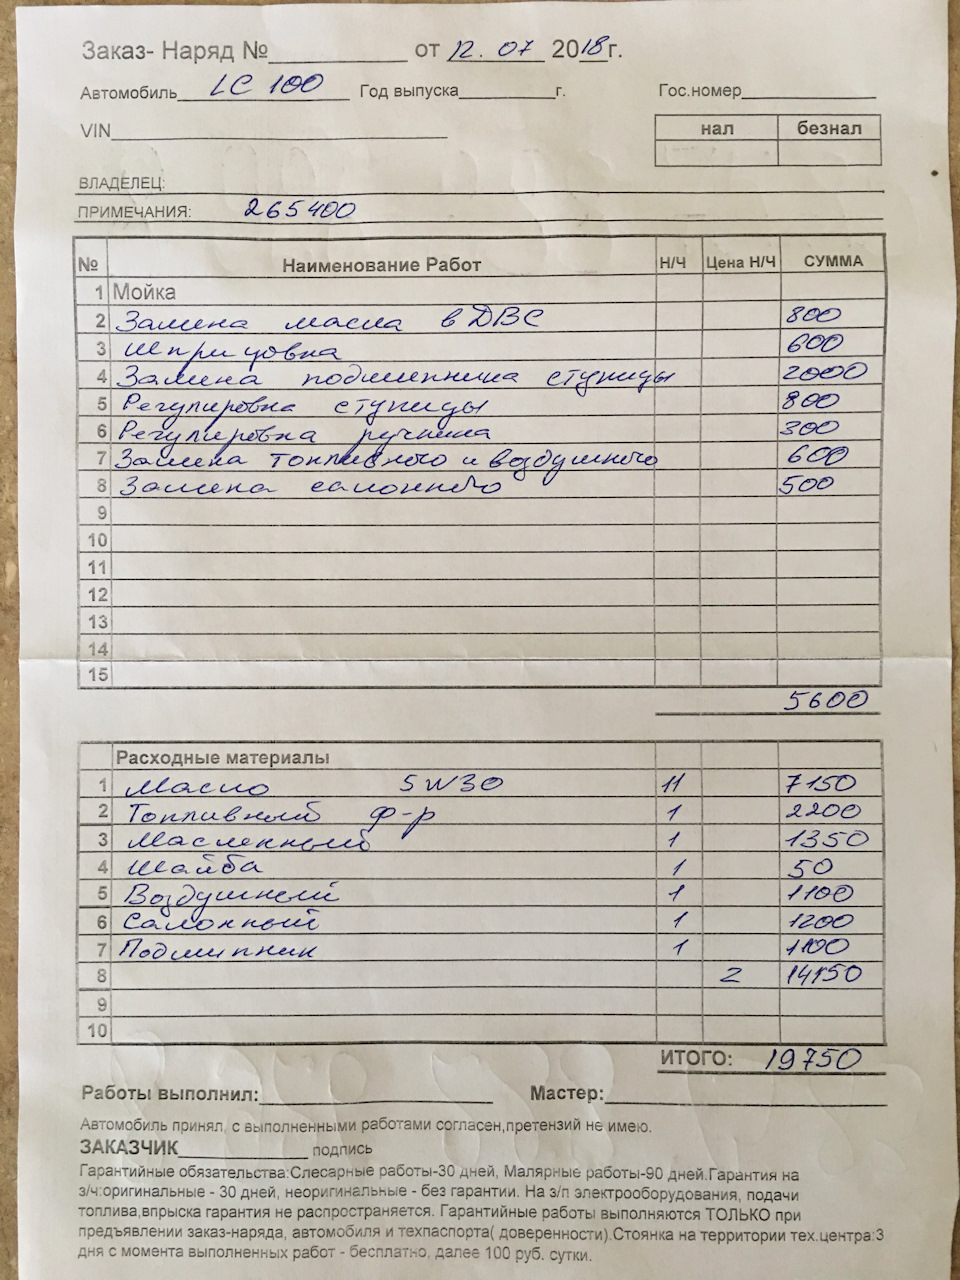 Заказ- Наряд № от 12.07 2018г.
Автомобиль LC 100 Год выпуска г. Гос.номер
VIN
нал безнал
ВЛАДЕЛЕЦ:
ПРИМЕЧАНИЯ: 265400
№ Наименование Работ Н/Ч Цена Н/Ч СУММА
1 Мойка
2 Замена масла в ДВС 800
3 Шприцовка 600
4 Замена подшипника ступицы 2000
5 Регулировка ступицы 800
6 Регулировка ручника 300
7 Замена топливного и воздушного 600
8 Замена салонного 500
9
10
11
12
13
14
15
5600
Расходные материалы
1 Масло 5W30 11 7150
2 Топливный ф-р 1 2200
3 Масленный 1 1350
4 Шайба 1 50
5 Воздушный 1 1100
6 Салонный 1 1200
7 Подшипник 1 1100
8 2 14150
9
10
ИТОГО: 19750
Работы выполнил: Мастер:
Автомобиль принял, с выполненными работами согласен,претензий не имею.
ЗАКАЗЧИК подпись
Гарантийные обязательства:Слесарные работы-30 дней, Малярные работы-90 дней.Гарантия на
з/ч:оригинальные - 30 дней, неоригинальные - без гарантии. На з/п электрооборудования, подачи
топлива,впрыска гарантия не распространяется. Гарантийные работы выполняются ТОЛЬКО при
предъявлении заказ-наряда, автомобиля и техпаспорта( доверенности).Стоянка на территории тех.центра:3
дня с момента выполненных работ - бесплатно, далее 100 руб. сутки.